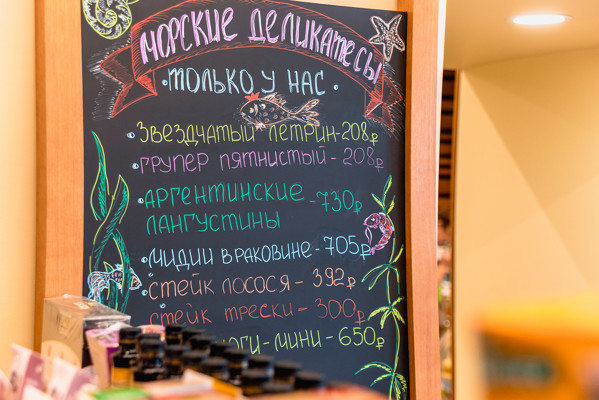 МОРСКИЕ ДЕЛИКАТЕСЫ
ТОЛЬКО У НАС
ЗВЕЗДЧАТЫЙ ЛЕТРИН-208₽
ГРУПЕР ПЯТНИСТЫЙ - 208₽
АРГЕНТИНСКИЕ -730₽
ЛАНГУСТИНЫ
МИДИИ В РАКОВИНЕ - 705₽
СТЕЙК ЛОСОСЯ - 392₽
СТЕЙК ТРЕСКИ - 300₽
-МИНИ - 650₽